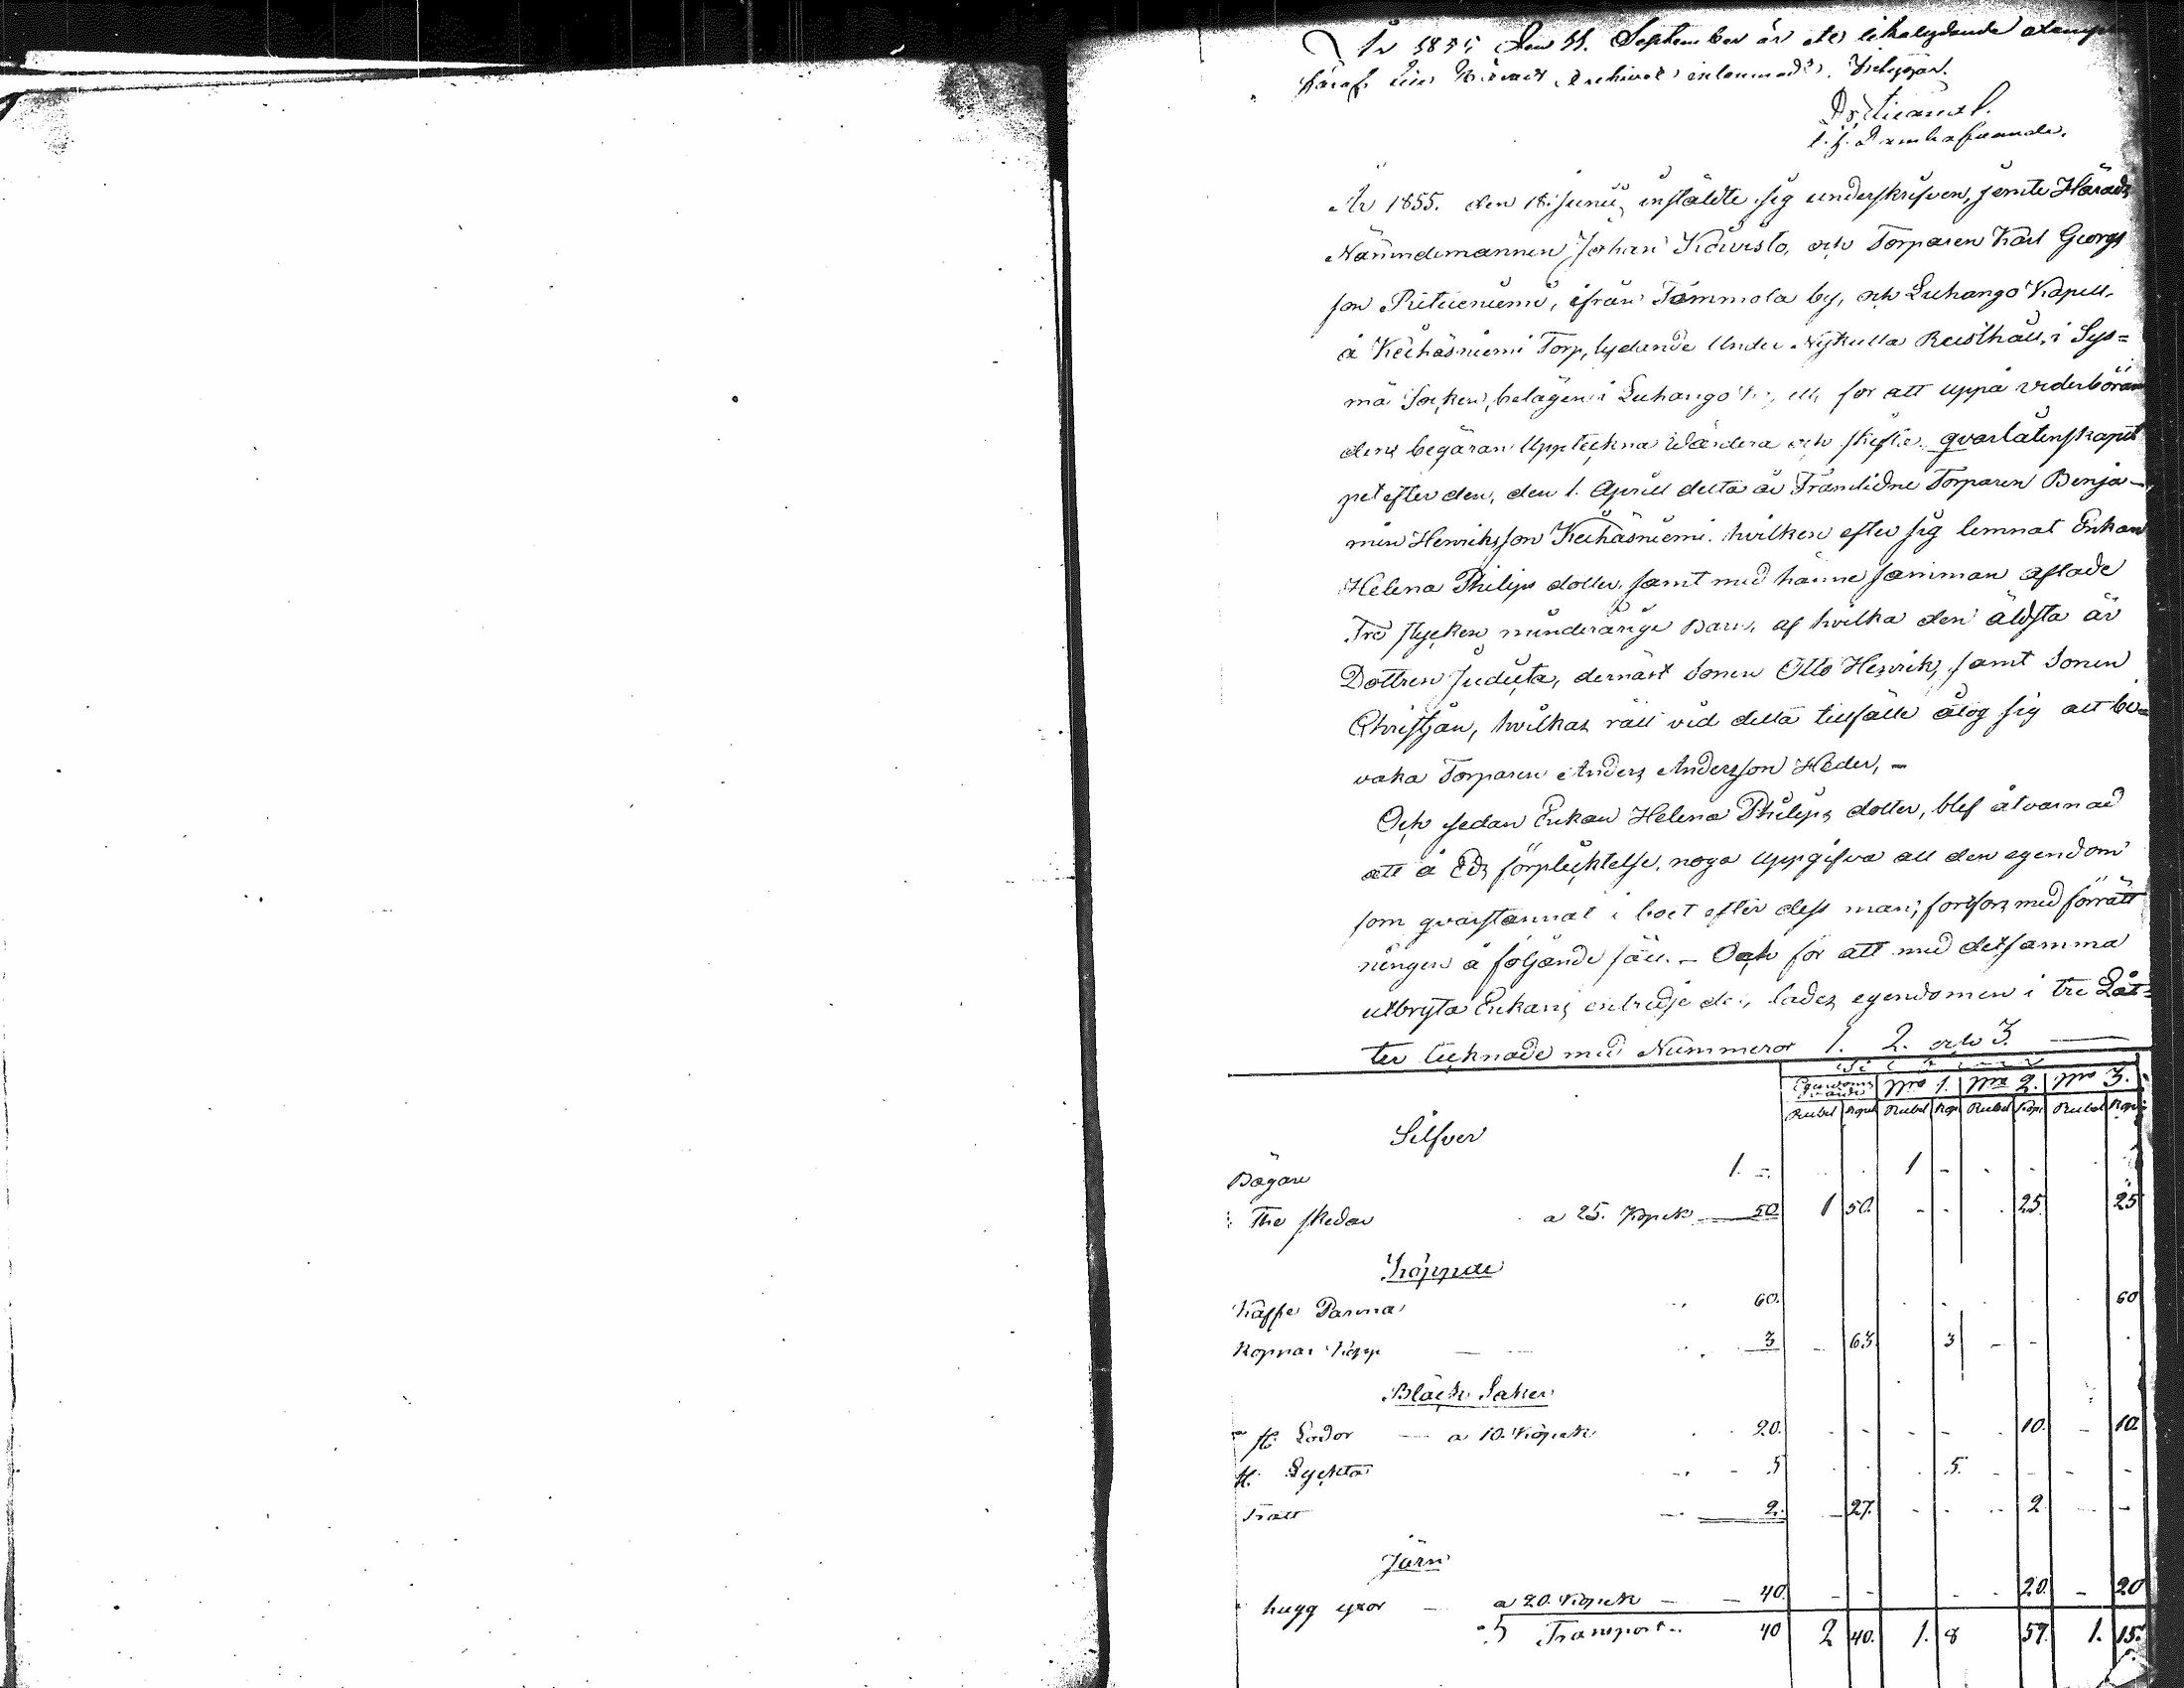 År 1855 den 11. September är ett likalydande
häraf till Härads Archivet inlemnadt. Intygar.
t. f. Domhafvande.
År 1855. den 18. Junii, instäldte sig underskrifven, jemte Härads
Nämndemannen Johan Koivisto, och Torparen Karl Georgs
son Pietileniemi, ifrån Tammola by, och Luhango Kapell,
å Keihäsniemi Torp, lydande Under Nykulla Rusthåll, i Sys=
mä Socken, belägen i Luhango för att uppå vederböran
dens begäran Uppteckna Värdera och skifta qvarlåtenskapet
pet efter den, den 1. Aprill detta år Framlidne Torparen Benja-
min Henriksson Keihäsniemi. hvilken efter sig lemnat Enkan
Helena Philips dotter, samt med hänne samman aflade
Tre stycken minderårige Barn, af hvilka den äldsta är
Dottren Juditta, dernäst Sonen Otto Henrik, samt Sonen
Christjan, hvilkas rätt vid detta tillfälle åtog sig att be=
vaka Torparen Anders Andersson Heder, -
Och sedan Enkan Helena Philips dotter, blef åtvarnad
att å Eds förplicktelse, noga Uppgifva all den egendom
som qvarstannat i boet efter dess man; fortfors med förrätt
ningen å följande sätt. - Och för att med detsamma
utbryta Enkans entridje del, lades egendomen i tre Lot=
ter tecknade med Nummeror 1. 2. och 3.
Egendoms värde No 1. No 2. No 3.
Rubel Kopek Rubel Kop Rubel Kop Rubel Kopek
Silfver
Bägare 1. - 1 -
The skedar a 25. Kopek 50 1 50. 25. 25
Koppar
Kaffe Panna 60. 60
Koppar Kopp 3 - 63. 3
Bläck Saker
st. Lådor a 10. Kopek 20. 10. 10.
st. Lyckta 5 5.
Tratt 2. 27. 2
Järn
hugg yxor a 20. Kopek 40. 20. 20
Transport.. 40 2 40. 1. 8 57. 1. 15.